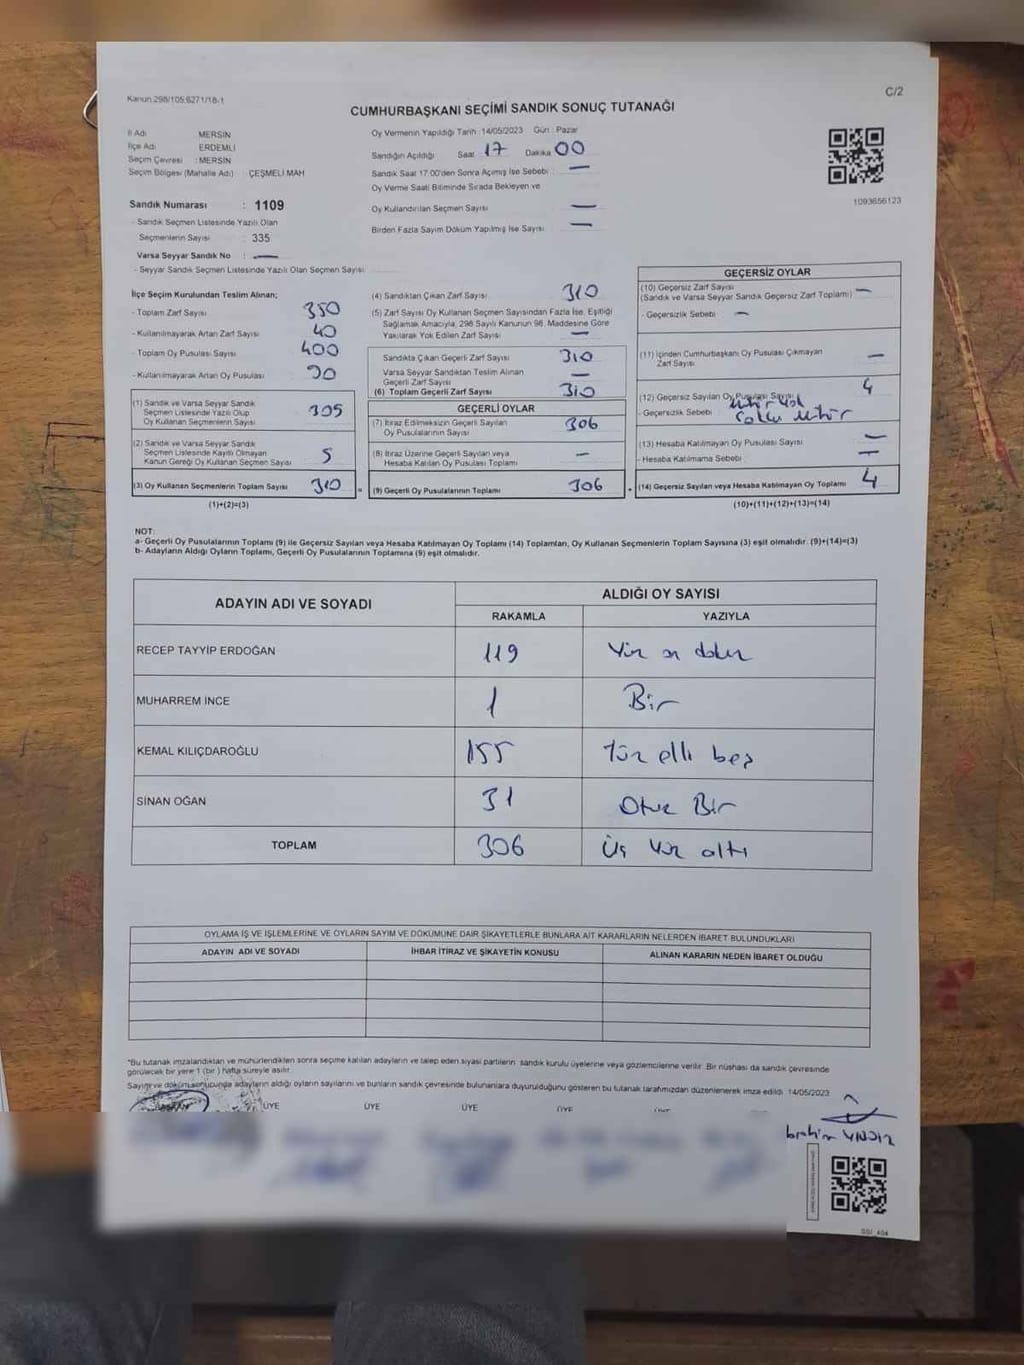 Kanun.298/105,6271/18-1
C/2
CUMHURBAŞKANI SEÇİMİ SANDIK SONUÇ TUTANAĞI
İl Adı MERSİN
İlçe Adı ERDEMLİ
Seçim Çevresi : MERSİN
Seçim Bölgesi (Mahalle Adı) : ÇEŞMELİ MAH
Sandık Numarası : 1109
- Sandık Seçmen Listesinde Yazılı Olan
Seçmenlerin Sayısı : 335
Varsa Seyyar Sandık No : —
- Seyyar Sandık Seçmen Listesinde Yazılı Olan Seçmen Sayısı
Oy Vermenin Yapıldığı Tarih :14/05/2023 Gün : Pazar
Sandığın Açıldığı Saat 17 Dakika 00
Sandık Saat 17:00'den Sonra Açılmış İse Sebebi : —
Oy Verme Saati Bitiminde Sırada Bekleyen ve
Oy Kullandırılan Seçmen Sayısı —
Birden Fazla Sayım Döküm Yapılmış İse Sayısı —
1093656123
İlçe Seçim Kurulundan Teslim Alınan;
- Toplam Zarf Sayısı 350
- Kullanılmayarak Artan Zarf Sayısı 40
- Toplam Oy Pusulası Sayısı 400
- Kullanılmayarak Artan Oy Pusulası 90
(1) Sandık ve Varsa Seyyar Sandık
Seçmen Listesinde Yazılı Olup
Oy Kullanan Seçmenlerin Sayısı 305
(2) Sandık ve Varsa Seyyar Sandık
Seçmen Listesinde Kayıtlı Olmayan
Kanun Gereği Oy Kullanan Seçmen Sayısı 5
(3) Oy Kullanan Seçmenlerin Toplam Sayısı 310
(1)+(2)=(3)
(4) Sandıktan Çıkan Zarf Sayısı 310
(5) Zarf Sayısı Oy Kullanan Seçmen Sayısından Fazla İse, Eşitliği
Sağlamak Amacıyla, 298 Sayılı Kanunun 98. Maddesine Göre
Yakılarak Yok Edilen Zarf Sayısı —
Sandıkta Çıkan Geçerli Zarf Sayısı 310
Varsa Seyyar Sandıktan Teslim Alınan
Geçerli Zarf Sayısı —
(6) Toplam Geçerli Zarf Sayısı 310
GEÇERLİ OYLAR
(7) İtiraz Edilmeksizin Geçerli Sayılan
Oy Pusulalarının Sayısı 306
(8) İtiraz Üzerine Geçerli Sayılan veya
Hesaba Katılan Oy Pusulası Toplamı —
= (9) Geçerli Oy Pusulalarının Toplamı 306
GEÇERSİZ OYLAR
(10) Geçersiz Zarf Sayısı
(Sandık ve Varsa Seyyar Sandık Geçersiz Zarf Toplamı) —
- Geçersizlik Sebebi : —
(11) İçinden Cumhurbaşkanı Oy Pusulası Çıkmayan
Zarf Sayısı —
(12) Geçersiz Sayılan Oy Pusulası Sayısı 4
- Geçersizlik Sebebi
(13) Hesaba Katılmayan Oy Pusulası Sayısı —
- Hesaba Katılmama Sebebi —
+ (14) Geçersiz Sayılan veya Hesaba Katılmayan Oy Toplamı 4
(10)+(11)+(12)+(13)=(14)
NOT:
a- Geçerli Oy Pusulalarının Toplamı (9) ile Geçersiz Sayılan veya Hesaba Katılmayan Oy Toplamı (14) Toplamları, Oy Kullanan Seçmenlerin Toplam Sayısına (3) eşit olmalıdır. (9)+(14)=(3)
b- Adayların Aldığı Oyların Toplamı, Geçerli Oy Pusulalarının Toplamına (9) eşit olmalıdır.
ADAYIN ADI VE SOYADI ALDIĞI OY SAYISI
RAKAMLA YAZIYLA
RECEP TAYYİP ERDOĞAN 119 Yüz on dokuz
MUHARREM İNCE 1 Bir
KEMAL KILIÇDAROĞLU 155 Yüz elli beş
SİNAN OĞAN 31 Otuz Bir
TOPLAM 306 Üç Yüz altı
OYLAMA İŞ VE İŞLEMLERİNE VE OYLARIN SAYIM VE DÖKÜMÜNE DAİR ŞİKAYETLERLE BUNLARA AİT KARARLARIN NELERDEN İBARET BULUNDUKLARI
ADAYIN ADI VE SOYADI İHBAR İTİRAZ VE ŞİKAYETİN KONUSU ALINAN KARARIN NEDEN İBARET OLDUĞU
*Bu tutanak imzalandıktan ve mühürlendikten sonra seçime katılan adayların ve talep eden siyasi partilerin sandık kurulu üyelerine veya gözlemcilerine verilir. Bir nüshası da sandık çevresinde
görülecek bir yere 1 (bir ) hafta süreyle asılır.
Sayım ve döküm sonucunda adayların aldığı oyların sayılarını ve bunların sandık çevresinde bulunanlara duyurulduğunu gösteren bu tutanak tarafımızdan düzenlenerek imza edildi. 14/05/2023
ÜYE ÜYE ÜYE ÜYE